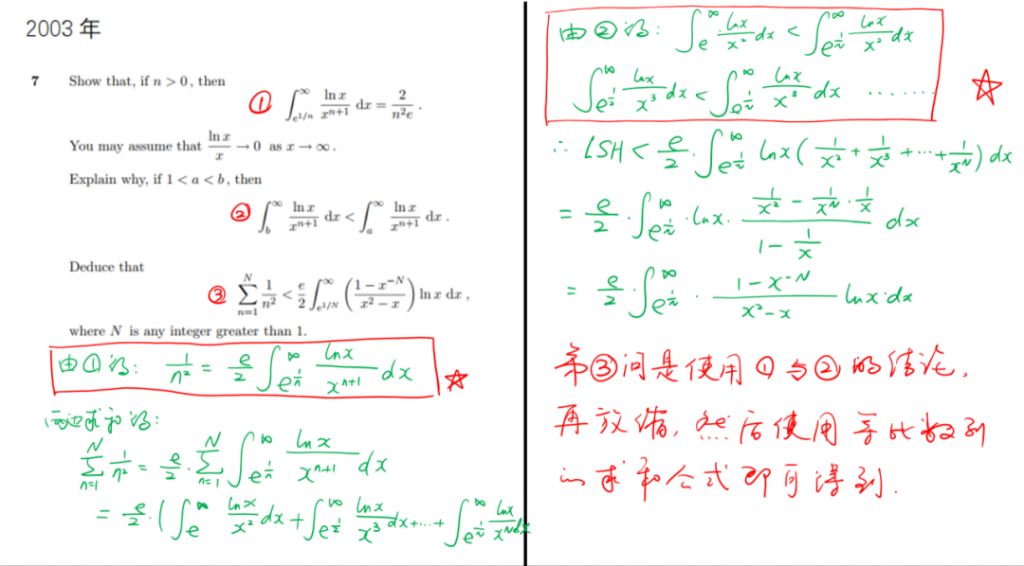 2003 年
7 Show that, if n > 0, then
① ∫_{e^{1/n}}^{∞} ln x / x^{n+1} dx = 2 / (n²e) .
You may assume that ln x / x → 0 as x → ∞.
Explain why, if 1 < a < b, then
② ∫_b^∞ ln x / x^{n+1} dx < ∫_a^∞ ln x / x^{n+1} dx .
Deduce that
③ ∑_{n=1}^{N} 1/n² < e/2 ∫_{e^{1/N}}^{∞} ( (1 − x^{−N}) / (x² − x) ) ln x dx ,
where N is any integer greater than 1.
由①得: 1/n² = e/2 ∫_{e^{1/n}}^{∞} lnx / x^{n+1} dx ☆
两边求和得:
∑_{n=1}^{N} 1/n² = e/2 · ∑_{n=1}^{N} ∫_{e^{1/n}}^{∞} lnx / x^{n+1} dx
= e/2 · ( ∫_e^∞ lnx / x² dx + ∫_{e^{1/2}}^{∞} lnx / x³ dx + ··· + ∫_{e^{1/N}}^{∞} lnx / x^N dx
由②得: ∫_e^∞ lnx / x² dx < ∫_{e^{1/N}}^{∞} lnx / x² dx
∫_{e^{1/2}}^{∞} lnx / x³ dx < ∫_{e^{1/N}}^{∞} lnx / x³ dx ········ ☆
∴ LSH < e/2 · ∫_{e^{1/N}}^{∞} lnx ( 1/x² + 1/x³ + ··· + 1/x^N ) dx
= e/2 · ∫_{e^{1/N}}^{∞} · lnx · (1/x² − 1/x^N · 1/x) / (1 − 1/x) dx
= e/2 ∫_{e^{1/N}}^{∞} · (1 − x^{−N}) / (x² − x) lnx·dx
第③问是使用①与②的结论,
再放缩, 然后使用等比数列
的求和公式即可得到.